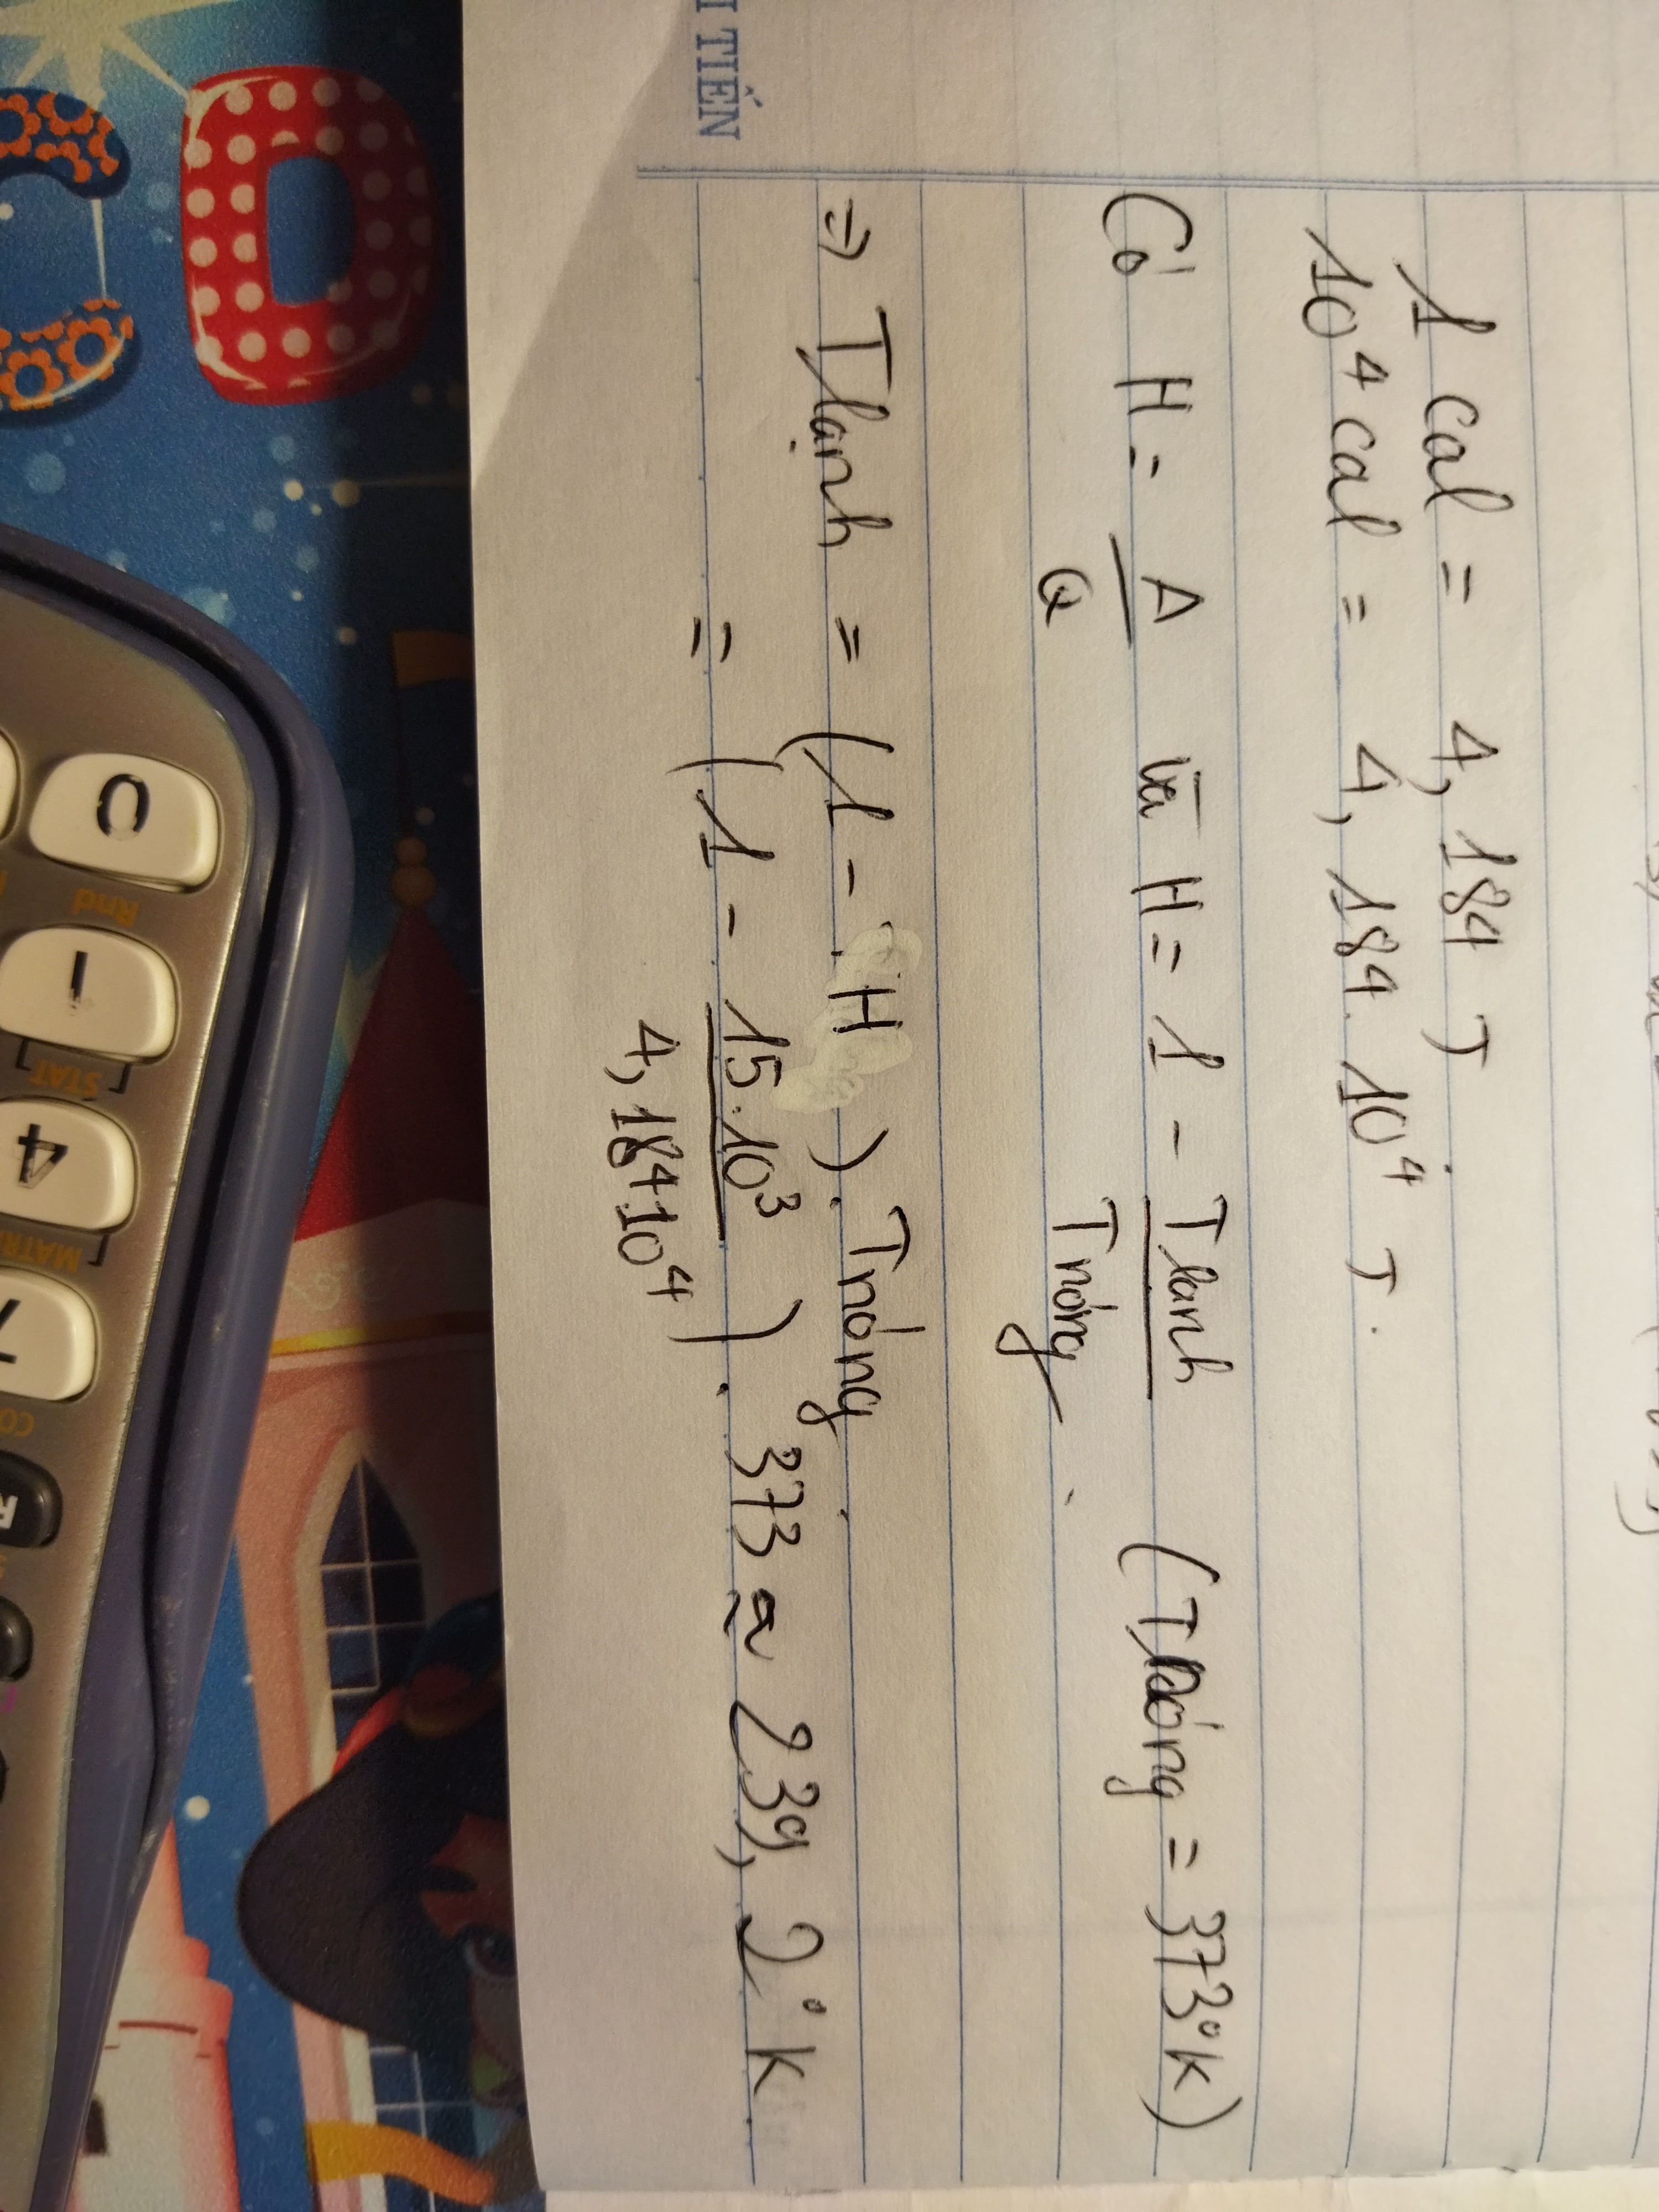 1 cal = 4,184 J
10⁴ cal = 4,184.10⁴ J.
Có H = A/Q và H = 1 - Tlạnh/Tnóng. (Tnóng = 373°K)
=> Tlạnh = (1 - H). Tnóng.
= (1 - 15.10³/4,184.10⁴). 373 ≈ 239,2°K
TIẾN
0
1
4
7
Rnd
STAT
MATR
CO
D
C